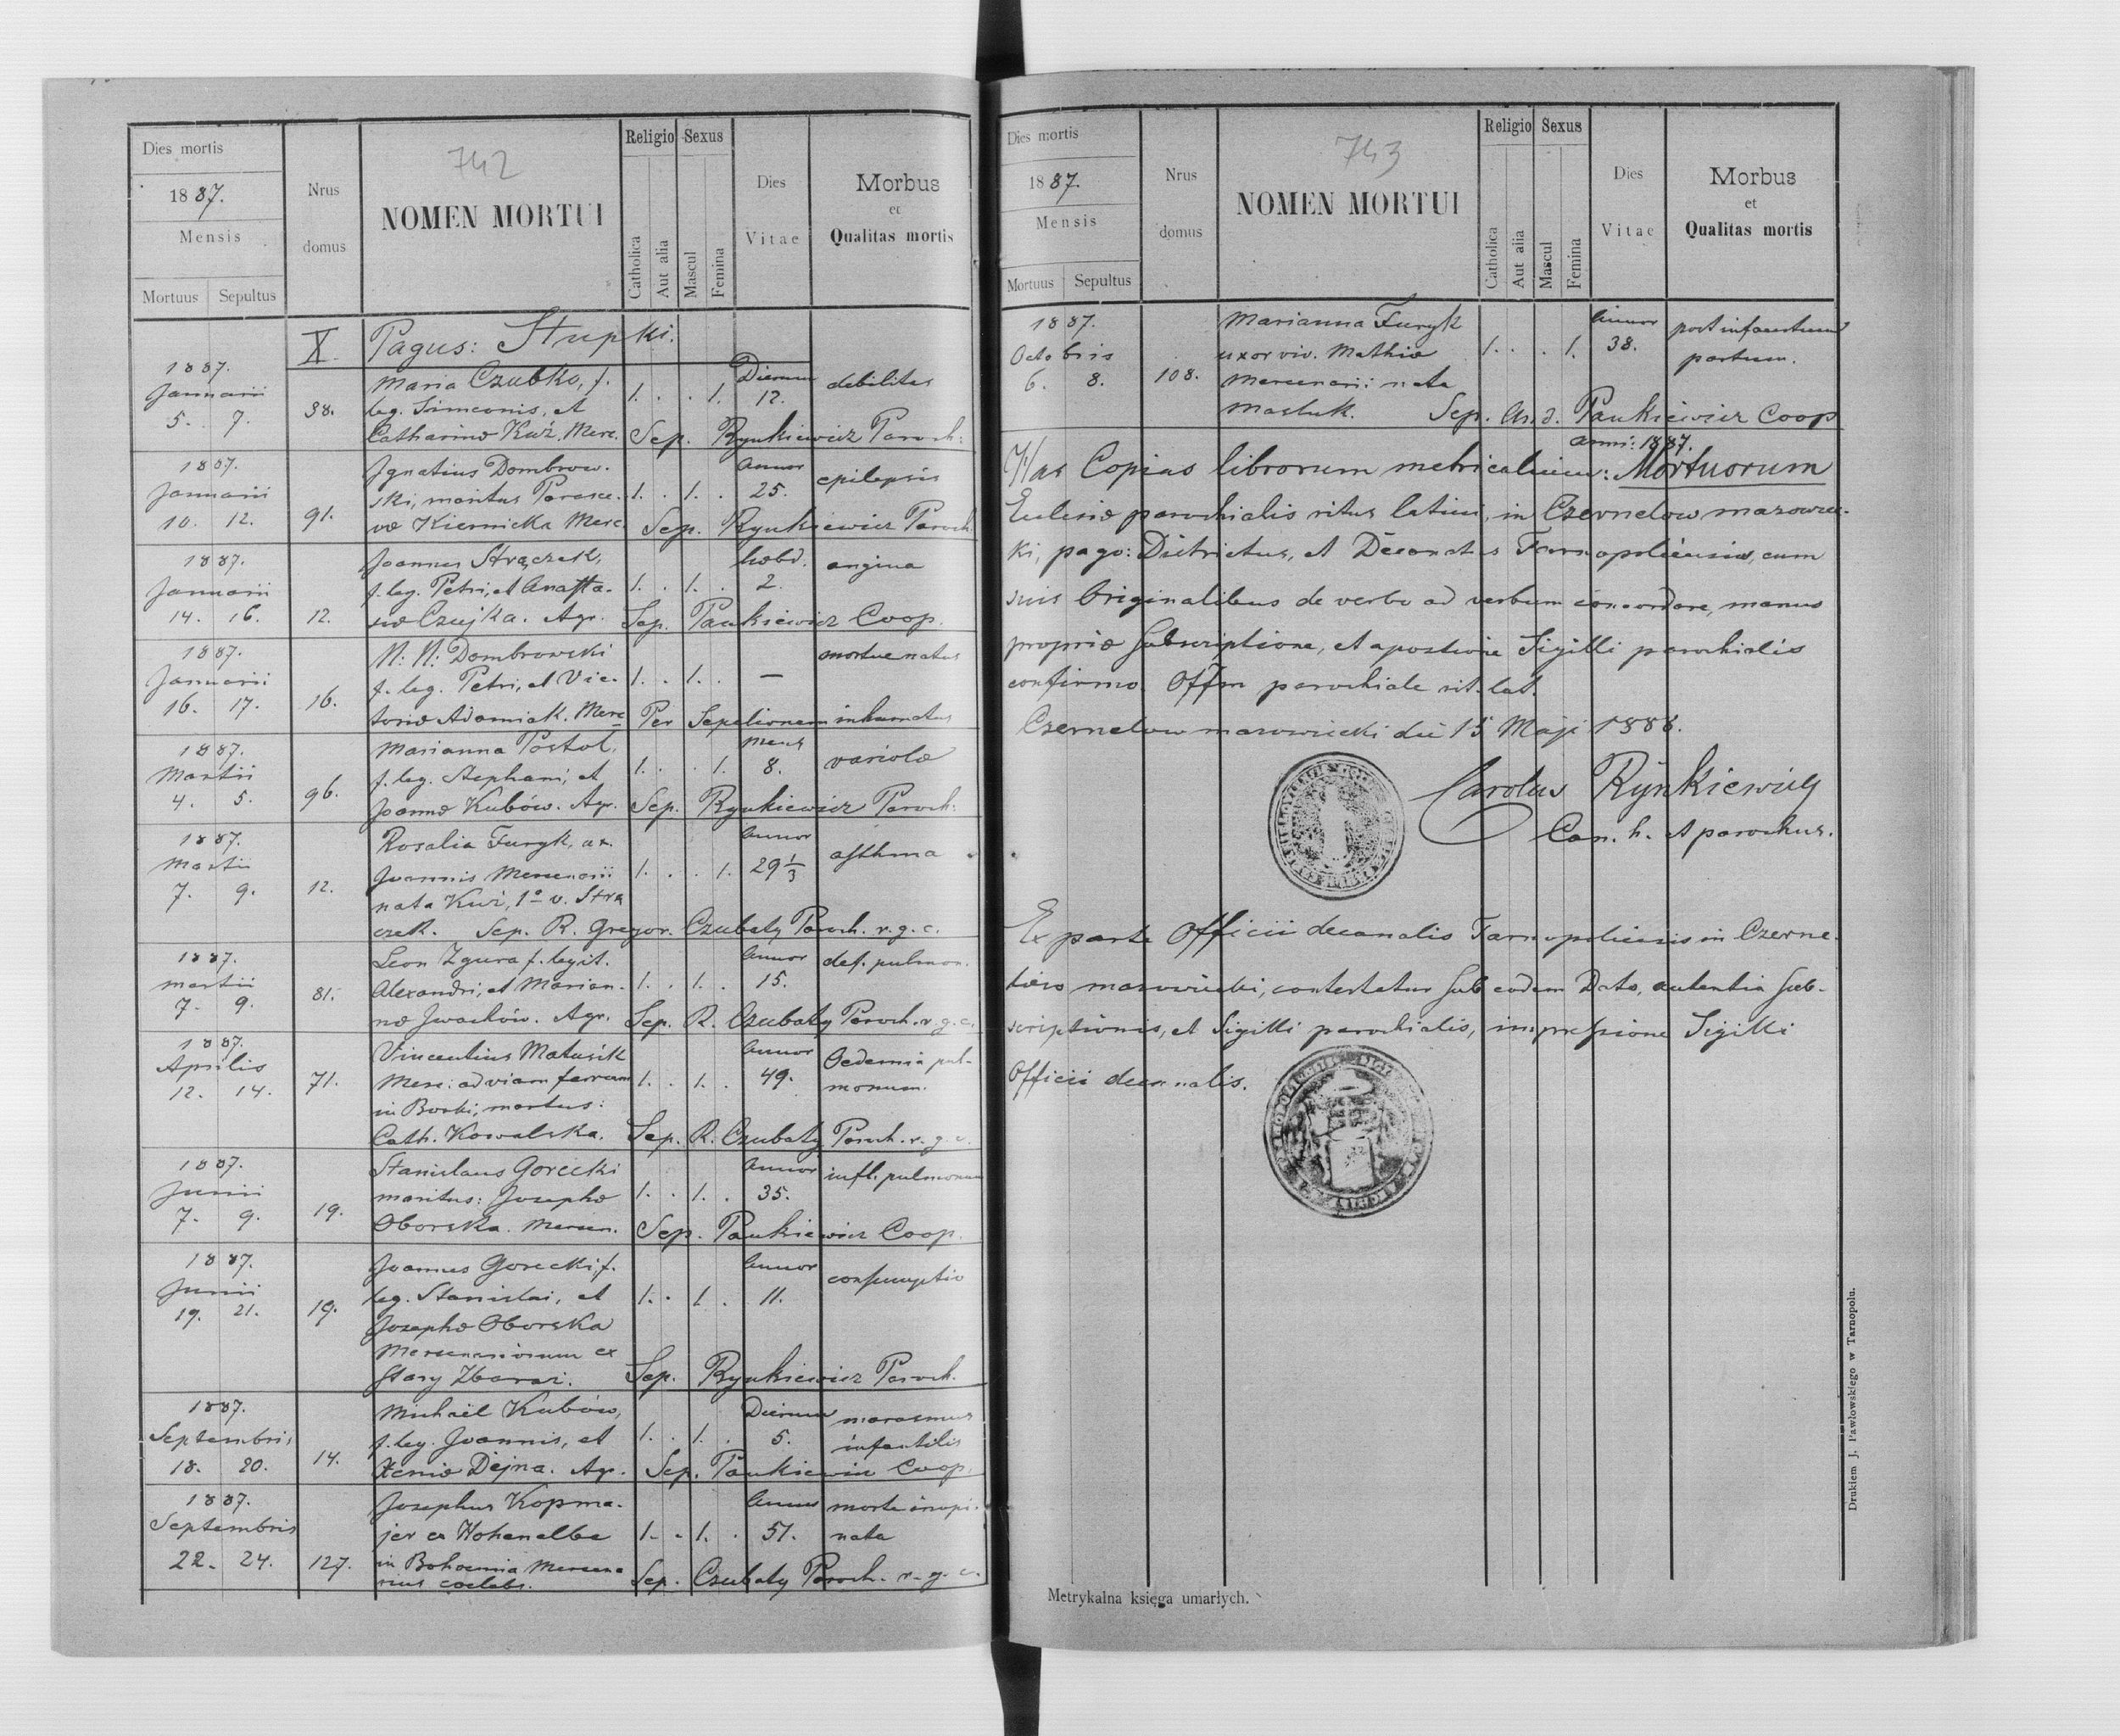 Dies mortis
1887.
Mensis
Mortuus Sepultus
Nrus
domus
742
NOMEN MORTUI
Religio Sexus
Catholica
Aut alia
Mascul
Femina
Dies
Vitae
Morbus
et
Qualitas mortis
X. Pagus: Stupki.
1887.
Januarii
5. 7.
38.
Maria Czubko, f.
leg. Simeonis, et
Catharinæ Kuź. Merc.
1. . . 1.
Dierum
12.
debilitas
Sep. Rynkiewicz Paroch:
1887.
Januarii
10. 12.
91.
Ignatius Dombrow-
ski, maritus Parasce-
væ Kiernicka Merc.
1. . 1. .
Annor
25.
epilepsis
Sep. Rynkiewicz Paroch.
1887.
Januarii
14. 16.
12.
Joannes Strączek,
f. leg. Petri, et Anasta-
siæ Czujka. Agr.
1. . 1. .
hebd.
2.
angina
Sep. Paukiewicz Coop.
1887.
Januarii
16. 17.
16.
N: N: Dombrowski
f. leg. Petri, et Vic-
toriæ Adamiak. Merc
1. . 1. .
—
mortue natus
Per Sepelionem inhumatus
1887.
Martii
4. 5.
96.
Marianna Postol.
f. leg. Stephani, et
Joannæ Kubów. Agr.
1. . . 1.
Mens
8.
variolæ
Sep. Rynkiewicz Paroch:
1887.
Martii
7. 9.
12.
Rosalia Furyk, ux.
Joannis Mercenarii
nata Kuź, 1º v. Strą
czek. Sep. R. Gregor. Czubaty Paroch. r. g. c.
1. . . 1.
Annor
29 1/3
asthma
1887.
Martii
7. 9.
81.
Leon Zgura f. legit.
Alexandri, et Marian-
næ Iwachów. Agr.
1. . 1. .
Annor
15.
def. pulmon.
Sep. R. Czubaty Paroch. r. g. c.
1887.
Aprilis
12. 14.
71.
Vincentius Matusik
Merc: ad viam ferream
in Borki, maritus:
Cath. Kowalska.
1. . 1. .
Annor
49.
Oedemia pul-
monum.
Sep. R. Czubaty Paroch. r. g. c.
1887.
Junii
7. 9.
19.
Stanislaus Gorecki
maritus: Josephæ
Oborska. Mercen.
1. . 1. .
Annor
35.
infl. pulmonum
Sep. Paukiewicz Coop.
1887.
Junii
19. 21.
19.
Joannes Gorecki, f.
leg. Stanislai, et
Josephæ Oborska
Mercenariorum ex
Stary Zbaraż.
1. . 1. .
Annor
11.
consumptio
Sep. Rynkiewicz Paroch.
1887.
Septembris
18. 20.
14.
Michaël Kubów,
f. leg. Joannis, et
Xeniæ Dejna. Agr.
1. . 1. .
Dierum
5.
marasmus
infantilis
Sep. Paukiewicz Coop.
1887.
Septembris
22. 24.
127.
Josephus Kopma-
jer ex Hohenelbe
in Bohoemia Mercena-
rius coelebs.
1. . 1. .
Annus
51.
morte inopi-
nata
Sep. Czubaty Paroch. r. g. c.
Dies mortis
1887.
Mensis
Mortuus Sepultus
Nrus
domus
743
NOMEN MORTUI
Religio Sexus
Catholica
Aut alia
Mascul
Femina
Dies
Vitae
Morbus
et
Qualitas mortis
1887.
Octobris
6. 8.
108.
Marianna Furyk
uxor viv. Mathiæ
Mercenarii nata
Masluk.
1. . . 1.
Annor
38.
post infaustum
partum.
Sep. And. Paukiewicz Coop
anni: 1887.
Has Copias librorum metricalium: Mortuorum
Eclesiæ parochialis ritus latini, in Czernelow mazowiec-
ki, pago: Districtus, et Decanatus Tarnopoliensis, cum
suis Originalibus de verbo ad verbum concordare, manus
propriæ Subscriptione, et apostione Sigilli parochialis
confirmo. Offm parochiale rit. lat.
Czernelow mazowiecki die 15 Maji 1888.
Carolus Rynkiewicz
Can. h. et parochus.
Ex parte Officii decanalis Tarnopoliensis in Czerne-
lów mazowiecki, contestatur sub eodem Dato, autentia Sub-
scriptionis, et Sigilli parochialis, impressione Sigilli
Officii decanalis.
Metrykalna księga umarłych.
Drukiem J. Pawłowskiego w Tarnopolu.